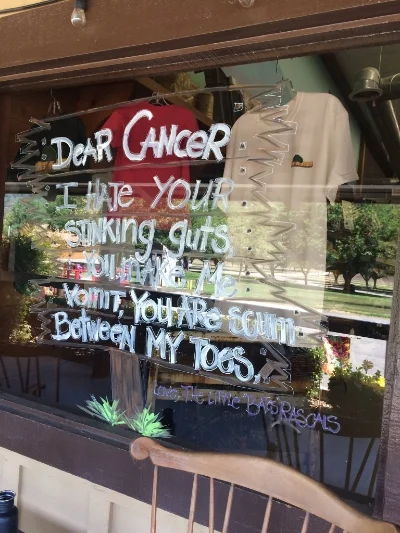 DEAR CANCER
I HATE YOUR
STINKING guTS.
YOU MAKE ME
VOMIT, YOU ARE SCUM
BETWEEN MY TOES,
LOVE, THE LITTLE BAR RASCALS